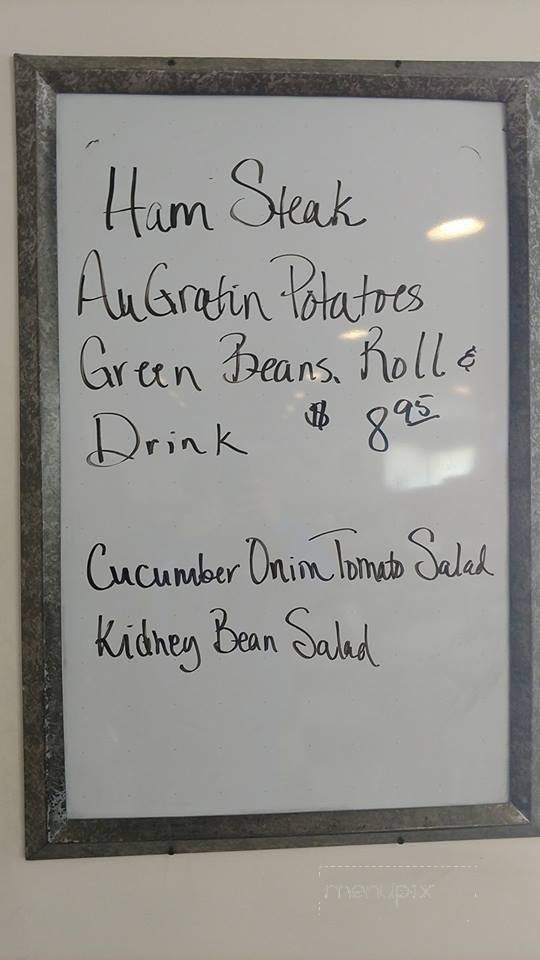 Ham Steak
Au Gratin Potatoes
Green Beans, Roll &
Drink $ 8.95
Cucumber Onion Tomato Salad
Kidney Bean Salad
menupix